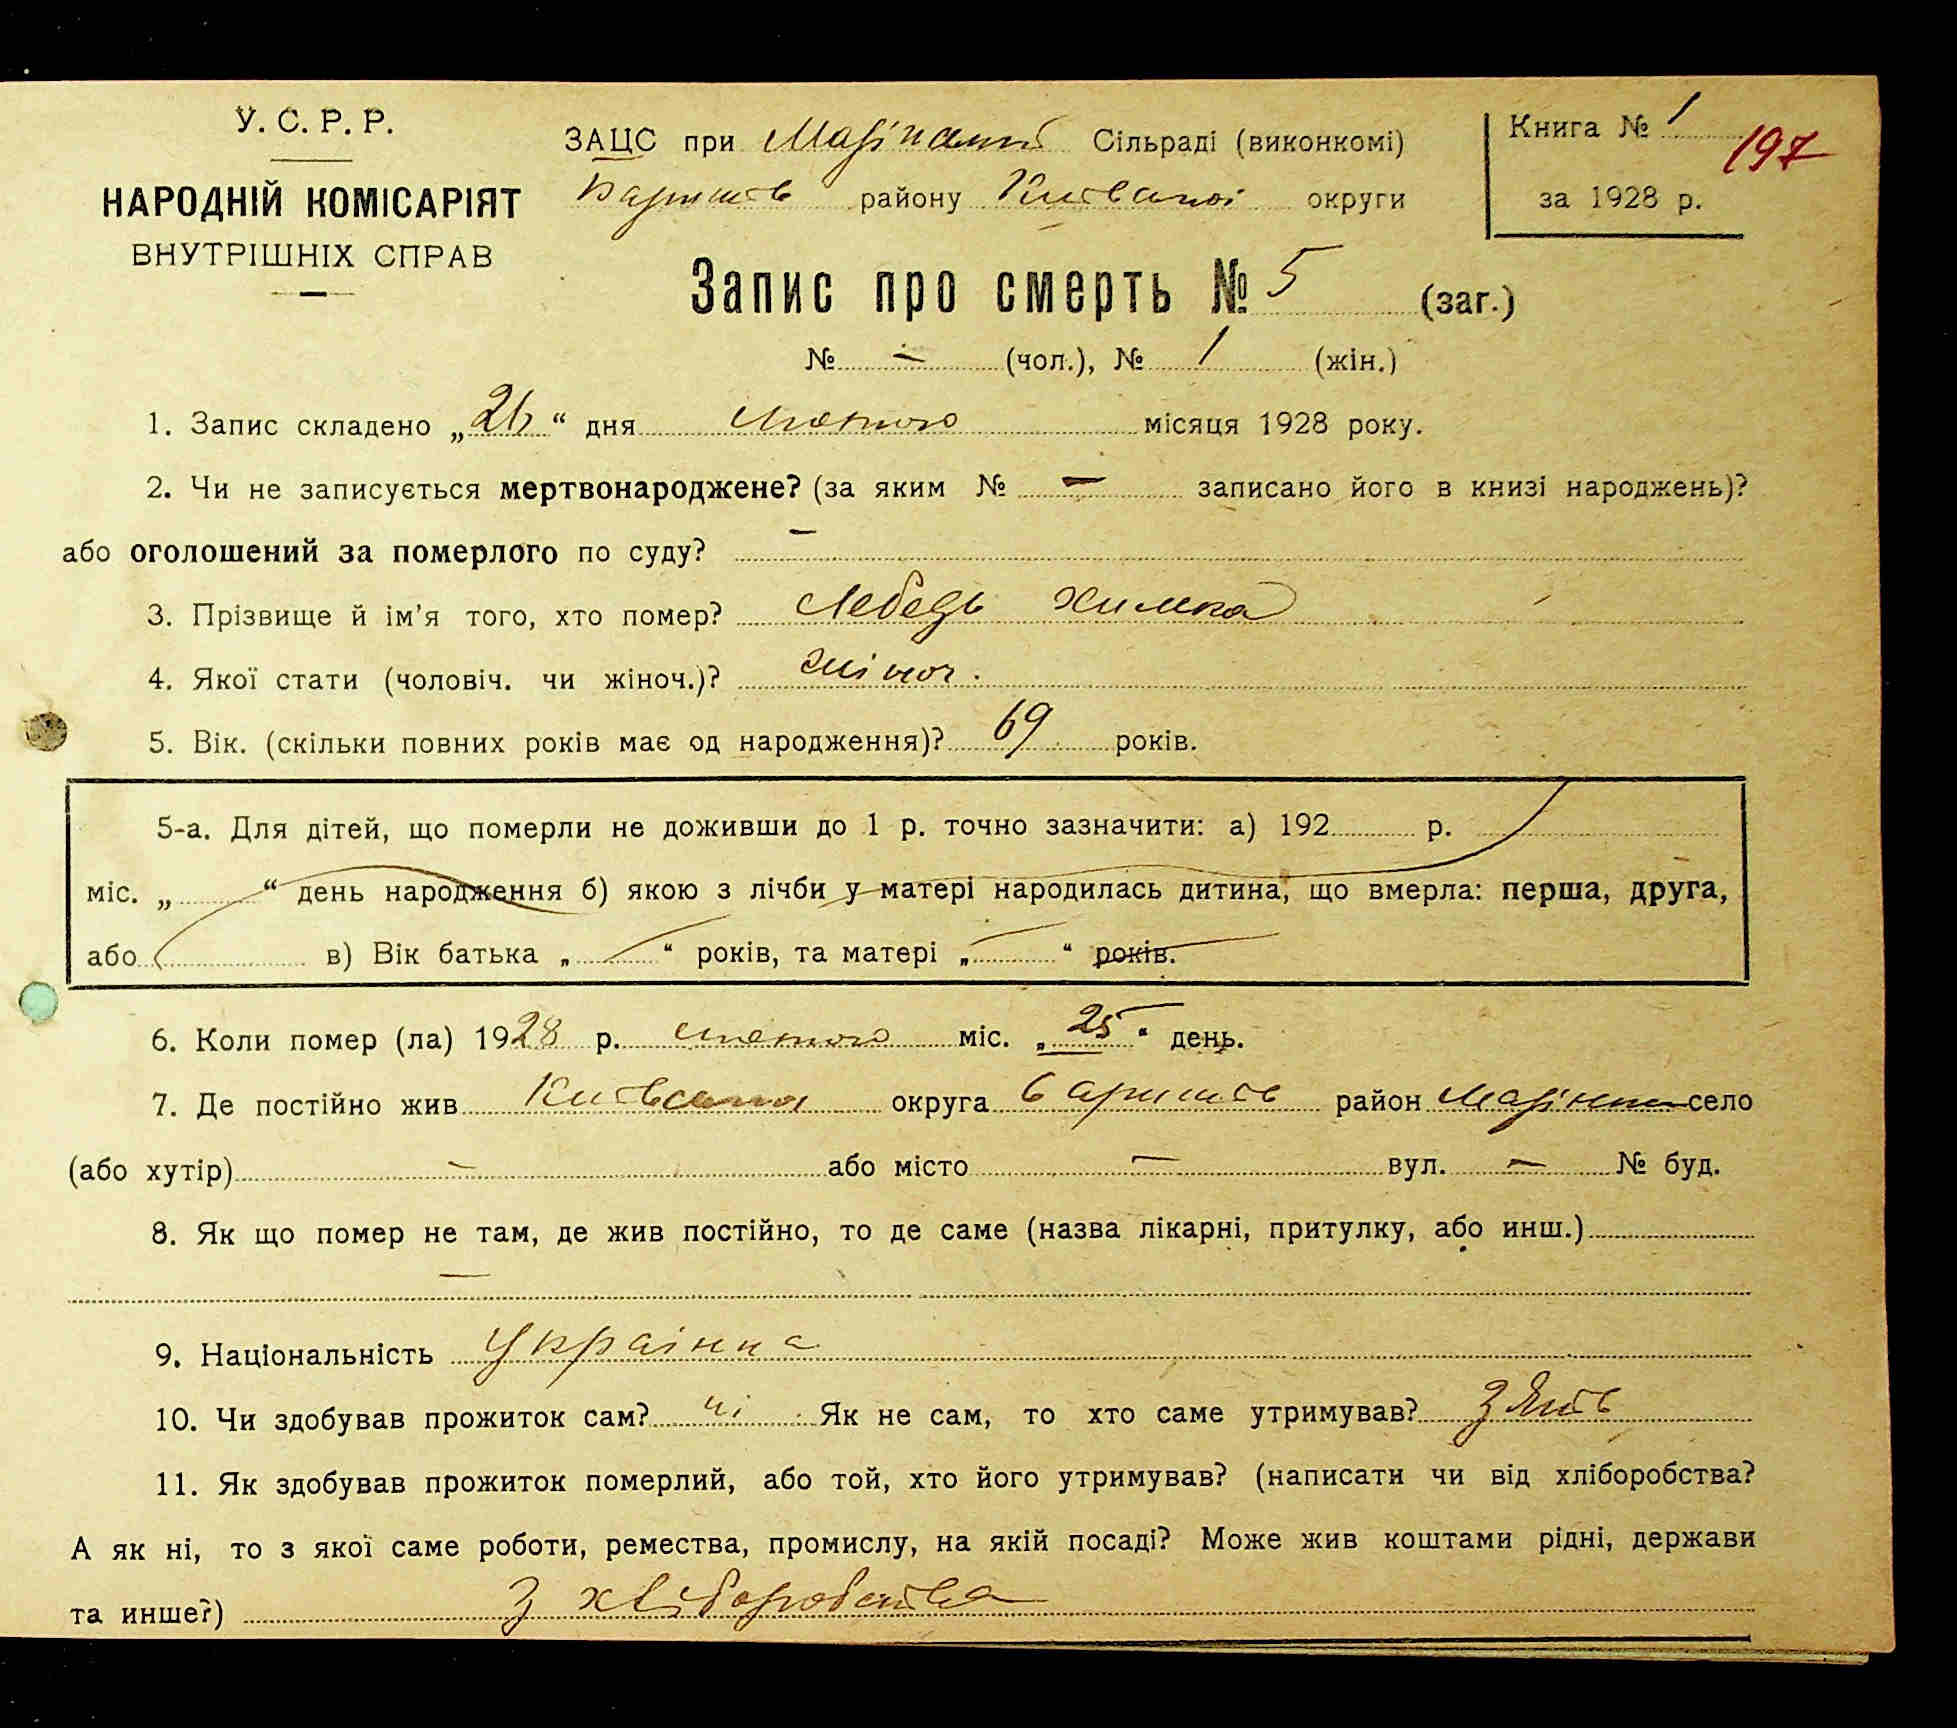 У. С. Р. Р.
НАРОДНІЙ КОМІСАРІЯТ
ВНУТРІШНІХ СПРАВ
ЗАЦС при Сільраді (виконкомі)
району Київської округи
Книга № 1
197
за 1928 р.
Запис про смерть № 5 (заг.)
№ — (чол.), № 1 (жін.)
1. Запис складено „26“ дня лютого місяця 1928 року.
2. Чи не записується мертвонароджене? (за яким № — записано його в книзі народжень)?
або оголошений за померлого по суду? —
3. Прізвище й ім'я того, хто помер? Лебедь Химка
4. Якої стати (чоловіч. чи жіноч.)? жіноч.
5. Вік. (скільки повних років має од народження)? 69 років.
5-а. Для дітей, що померли не доживши до 1 р. точно зазначити: а) 192 р.
міс. „ “ день народження б) якою з лічби у матері народилась дитина, що вмерла: перша, друга,
або в) Вік батька „ “ років, та матері „ “ років.
6. Коли помер (ла) 1928 р. лютого міс. „25“ день.
7. Де постійно жив Київська округа район село
(або хутір) — або місто — вул. — № буд.
8. Як що помер не там, де жив постійно, то де саме (назва лікарні, притулку, або инш.)
—
9. Національність Українка
10. Чи здобував прожиток сам? ні Як не сам, то хто саме утримував? Зять
11. Як здобував прожиток померлий, або той, хто його утримував? (написати чи від хліборобства?
А як ні, то з якої саме роботи, ремества, промислу, на якій посаді? Може жив коштами рідні, держави
та инше?) З хліборобства